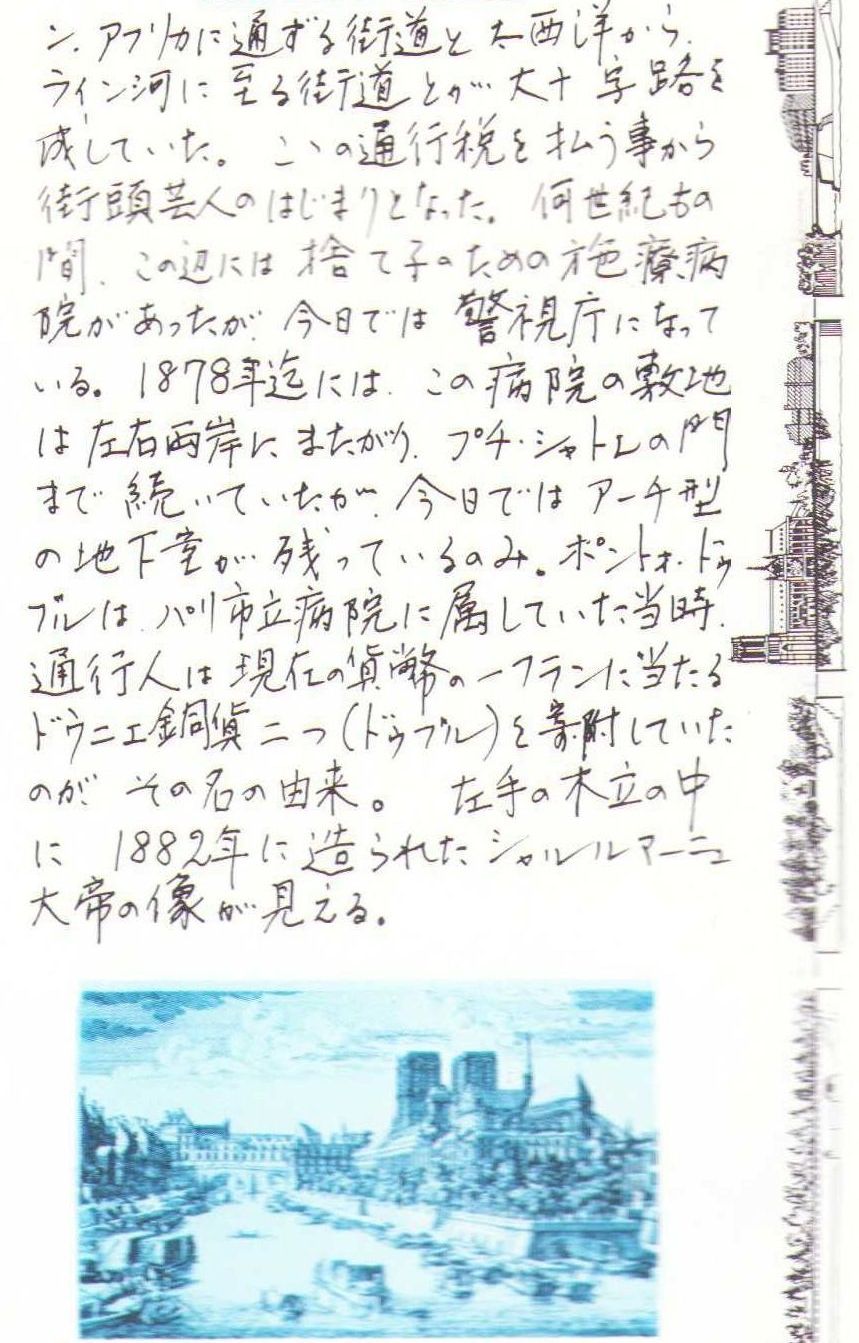 ン、アフリカに通ずる街道と大西洋から、
ライン河に至る街道とが、大十字路を
成していた。ここの通行税を払う事から
街頭芸人のはじまりとなった。何世紀もの
間、この辺には捨て子のための施療病
院があったが、今日では警視庁になって
いる。1878年迄には、この病院の敷地
は左右両岸にまたがり、プチ・シャトレの門
まで続いていたが、今日ではアーチ型
の地下室が残っているのみ。ポントォ・ドゥ
ブルは、パリ市立病院に属していた当時、
通行人は現在の貨幣の一フランに当たる
ドウニエ銅貨二つ(ドゥブル)を寄附していた
のがその名の由来。 左手の木立の中
に 1882年に造られたシャルルマーニュ
大帝の像が見える。